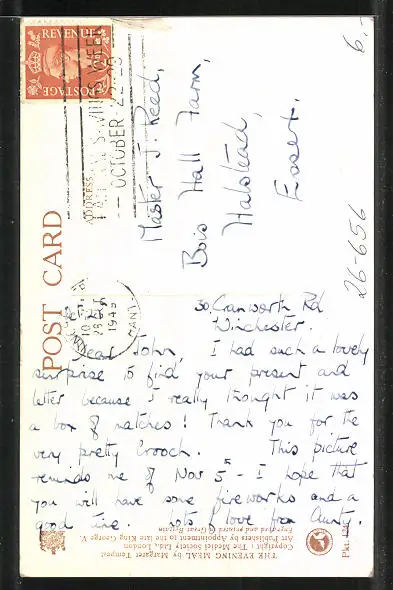 POST CARD
ADDRESS
REVENUE
POSTAGE
OCTOBER 22-29
Master J. Reed,
Bois Hall Farm,
Halstead,
Essex.
6.-
26-656
1949
HANTS
30, Cranworth Rd
Winchester.
Dear John, I had such a lovely
surprise to find your present and
letter because I really thought it was
a box of matches! Thank you for the
very pretty brooch. This picture
reminds me of Nov 5th - I hope that
you will have some fireworks and a
good time. Lots of love from Aunt.
THE EVENING MEAL by Margaret Tempest
Copyright: The Medici Society Ltd., London
Art Publishers by Appointment to the late King George V.
Engraved and printed in Great Britain
Pkt.